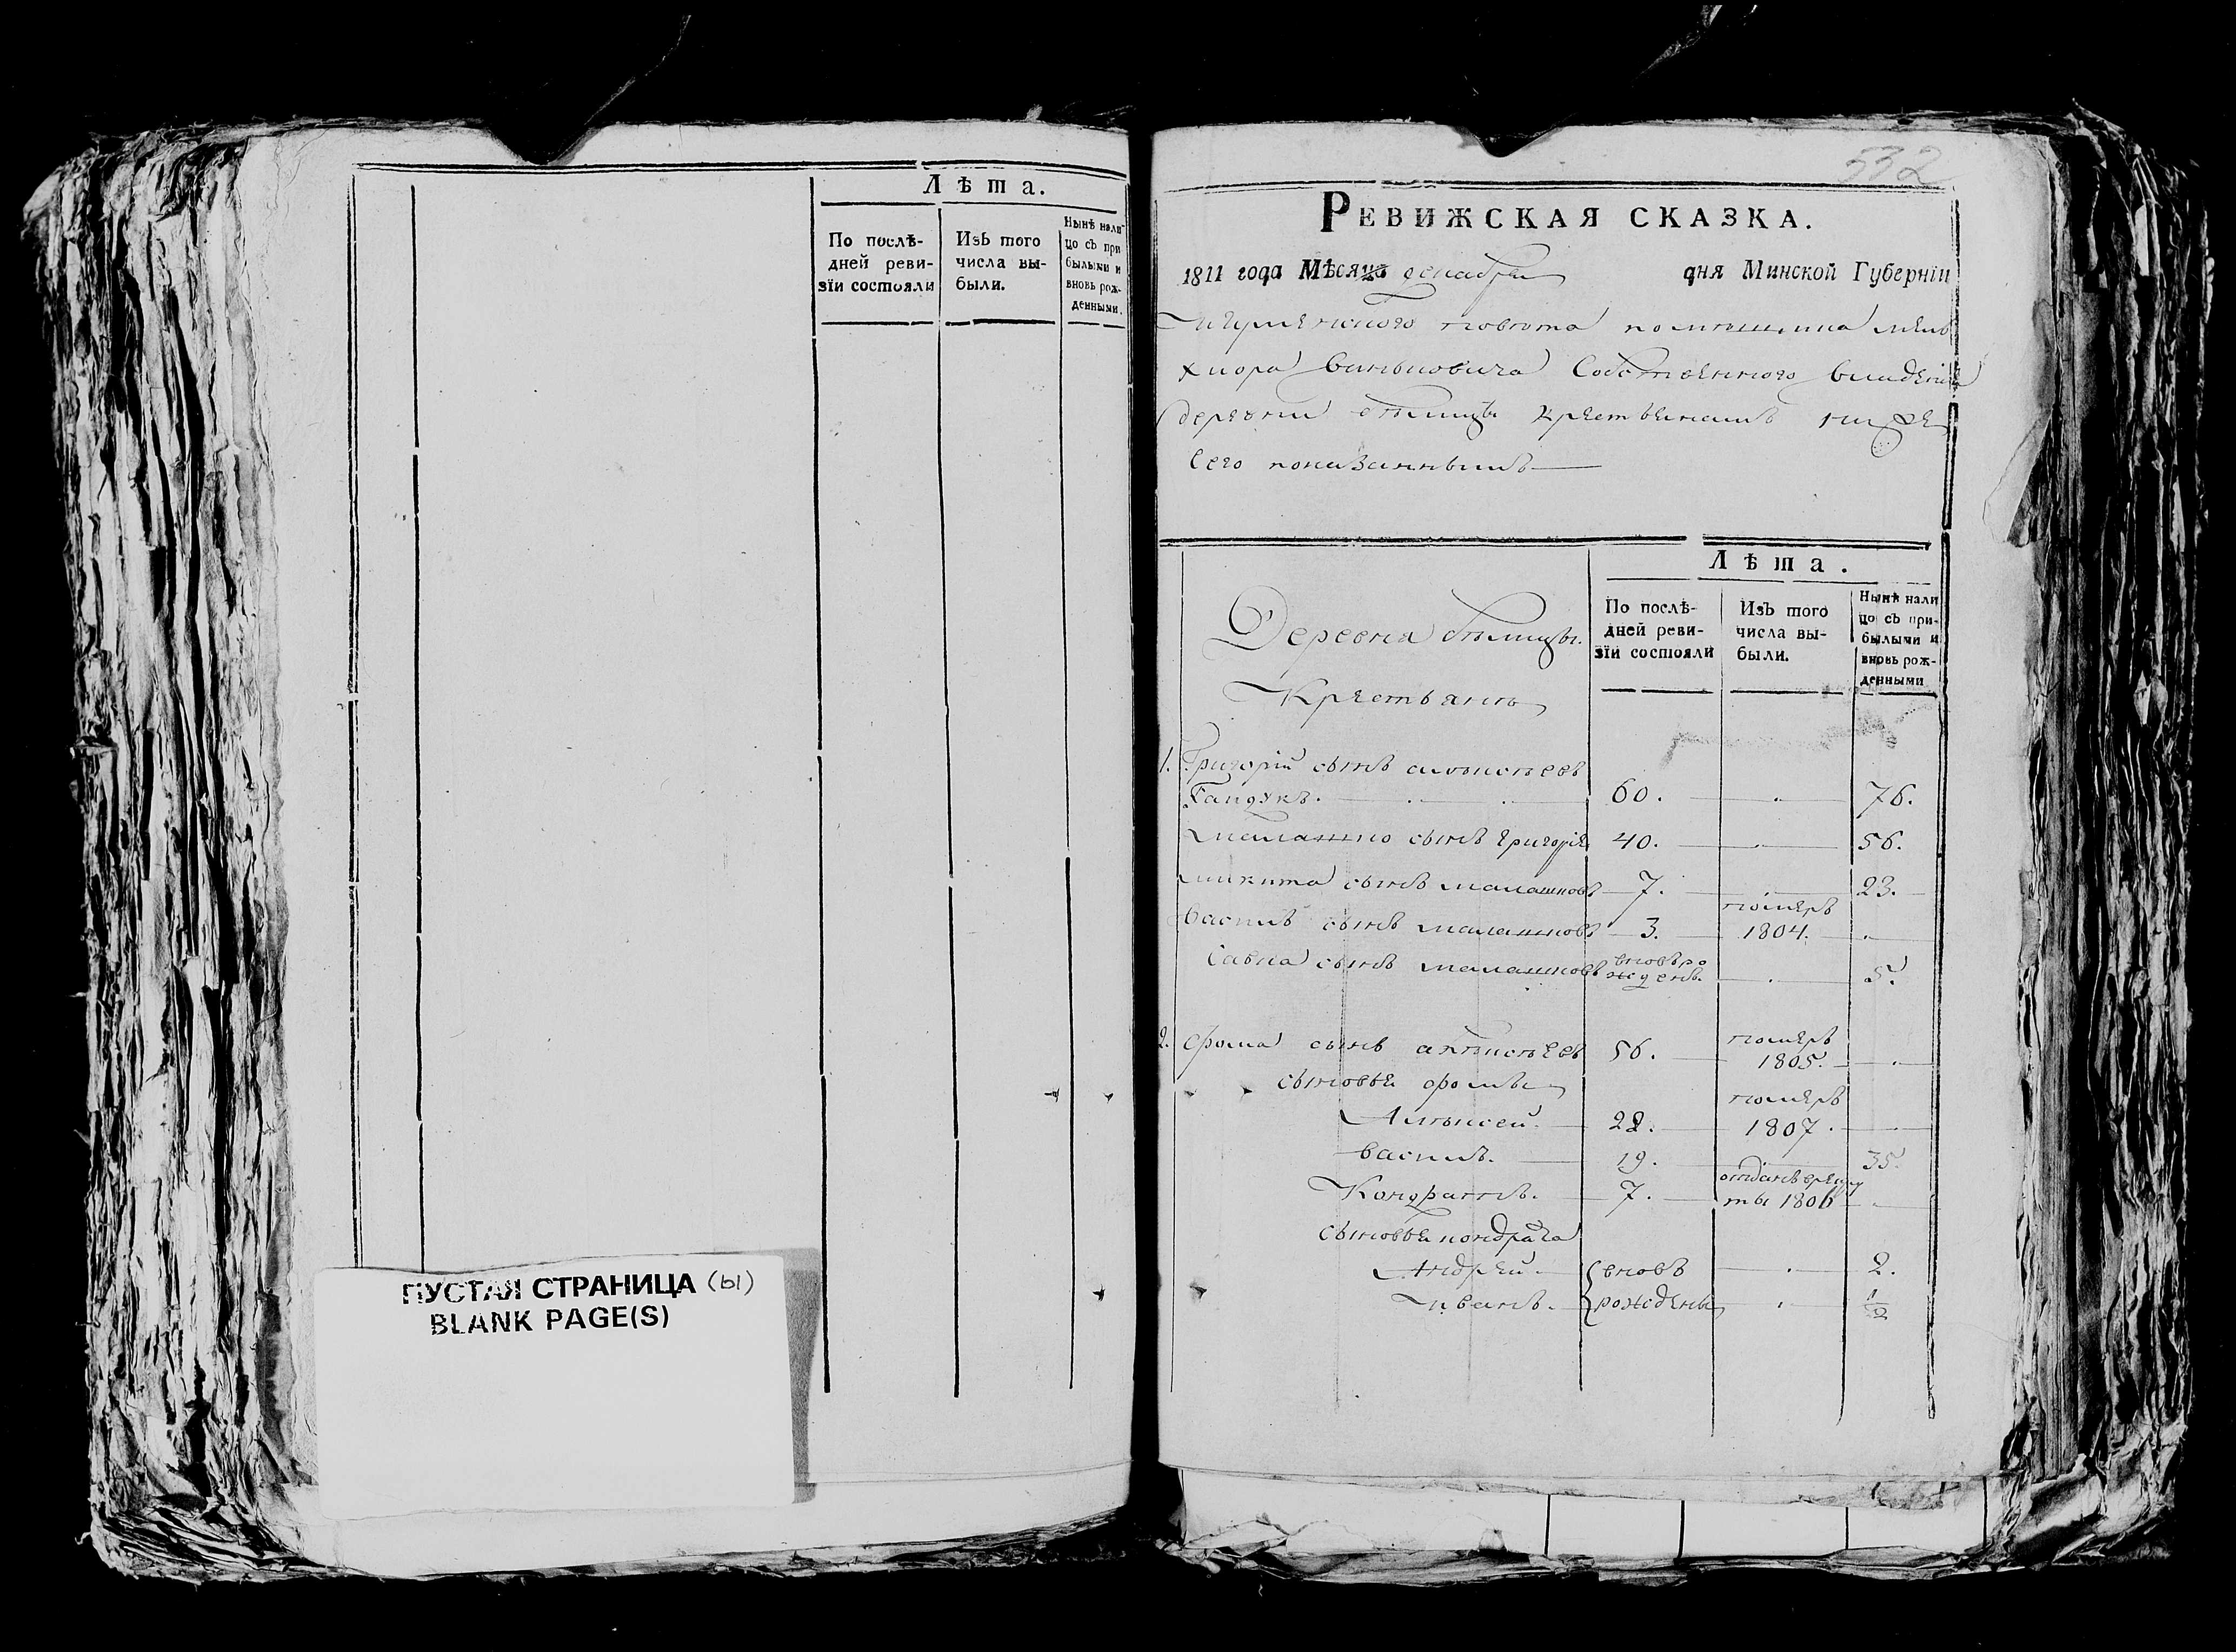 Лѣта.
По послѣ-
дней реви-
зїи состояли
Изъ того
числа вы-
были.
Нынѣ нали
цо съ при
былыми и
вновь рож-
денными.
ПУСТАЯ СТРАНИЦА (ы)
BLANK PAGE(S)
532
РЕВИЖСКАЯ СКАЗКА.
1811 года Мѣсяца декабря дня Минской Губернїи
Игуменского повѣта помѣщика мель
хиора Собственного владенія
деревни крестьянамъ ниже
сего показаннымъ
Деревня
Крестьянѣ
Лѣта.
По послѣ-
дней реви-
зїи состояли
Изъ того
числа вы-
были.
Нынѣ нали
цо съ при-
былыми и
вновь рож-
денными
1. Григорій сынъ алексѣевъ
Гайдукъ. 60. 76.
Малашко сынъ григорье 40. 56.
микита сынъ малашковъ 7. 23.
василь сынъ малашковъ 3. померъ 1804.
Савка сынъ малашковъ вновь ро
жденъ. 5.
2. фома сынъ алексѣевъ 56. померъ
1805.
сыновья фомы
Алексей 22. померъ
1807.
василь. 19. 35.
Кондратъ. 7. отданъ в рекру
ты 1806
сыновья кондрата
Андрей вновь 2.
иванъ. рождены 1/2